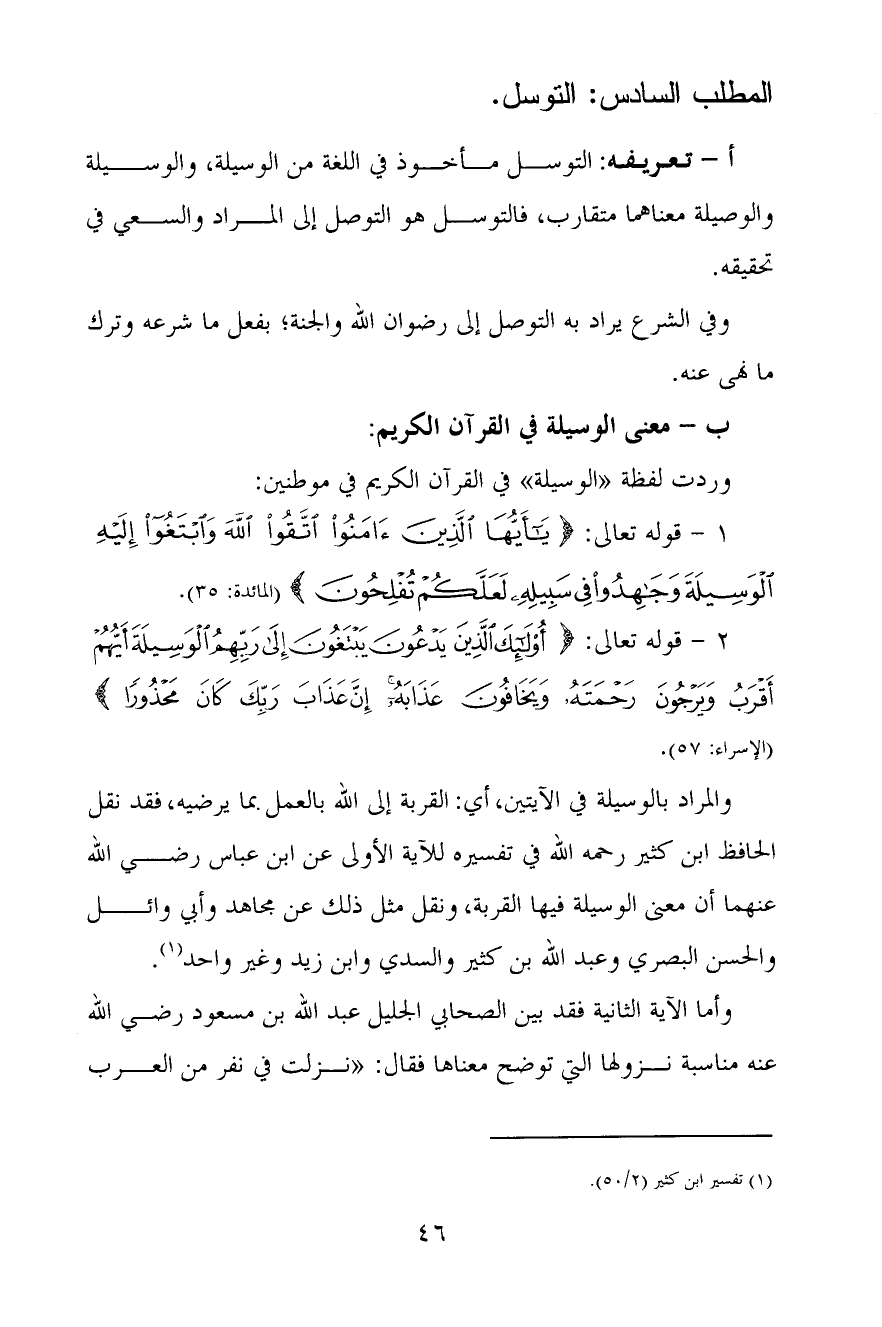 المطلب السادس: التوسل.
أ – تعريفه: التوسل مأخوذ في اللغة من الوسيلة، والوسيلة
والوصيلة معناهما متقارب، فالتوسل هو التوصل إلى المراد والسعي في
تحقيقه.
وفي الشرع يراد به التوصل إلى رضوان الله والجنة؛ بفعل ما شرعه وترك
ما نهى عنه.
ب – معنى الوسيلة في القرآن الكريم:
وردت لفظة «الوسيلة» في القرآن الكريم في موطنين:
١ – قوله تعالى: ﴿ يَٰٓأَيُّهَا ٱلَّذِينَ ءَامَنُوا۟ ٱتَّقُوا۟ ٱللَّهَ وَٱبْتَغُوٓا۟ إِلَيْهِ
ٱلْوَسِيلَةَ وَجَٰهِدُوا۟ فِى سَبِيلِهِۦ لَعَلَّكُمْ تُفْلِحُونَ ﴾ (المائدة: ٣٥).
٢ – قوله تعالى: ﴿ أُو۟لَٰٓئِكَ ٱلَّذِينَ يَدْعُونَ يَبْتَغُونَ إِلَىٰ رَبِّهِمُ ٱلْوَسِيلَةَ أَيُّهُمْ
أَقْرَبُ وَيَرْجُونَ رَحْمَتَهُۥ وَيَخَافُونَ عَذَابَهُۥٓ ۚ إِنَّ عَذَابَ رَبِّكَ كَانَ مَحْذُورًا ﴾
(الإسراء: ٥٧).
والمراد بالوسيلة في الآيتين، أي: القربة إلى الله بالعمل بما يرضيه، فقد نقل
الحافظ ابن كثير رحمه الله في تفسيره للآية الأولى عن ابن عباس رضي الله
عنهما أن معنى الوسيلة فيها القربة، ونقل مثل ذلك عن مجاهد وأبي وائل
والحسن البصري وعبد الله بن كثير والسدي وابن زيد وغير واحد(١).
وأما الآية الثانية فقد بين الصحابي الجليل عبد الله بن مسعود رضي الله
عنه مناسبة نزولها التي توضح معناها فقال: «نزلت في نفر من العرب
(١) تفسير ابن كثير (٢/٥٠).
٤٦